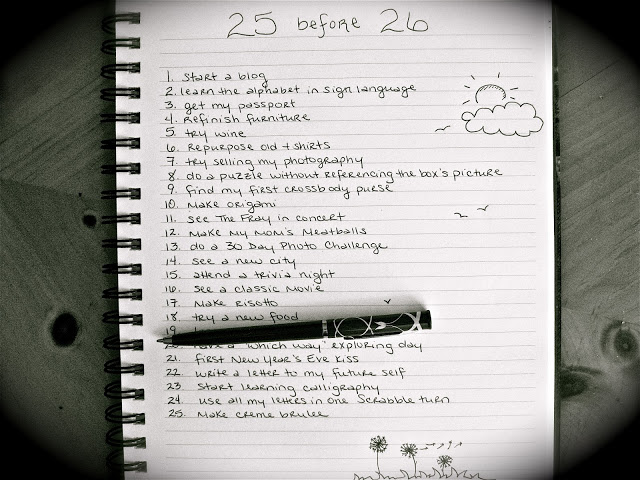 25 before 26
1. start a blog
2. learn the alphabet in sign language
3. get my passport
4. Refinish furniture
5. try wine
6. Repurpose old t shirts
7. try selling my photography
8. do a puzzle without referencing the box's picture
9. find my first crossbody purse
10. Make origami
11. see The Fray in concert
12. Make My Mom's Meatballs
13. do a 30 Day Photo Challenge
14. see a new city
15. attend a trivia night
16. see a classic Movie
17. Make Risotto
18. try a new food
19.
20. have a "which way" exploring day
21. first New Year's Eve Kiss
22. write a letter to my future self
23. start learning calligraphy
24. use all my letters in one Scrabble turn
25. Make creme brulee